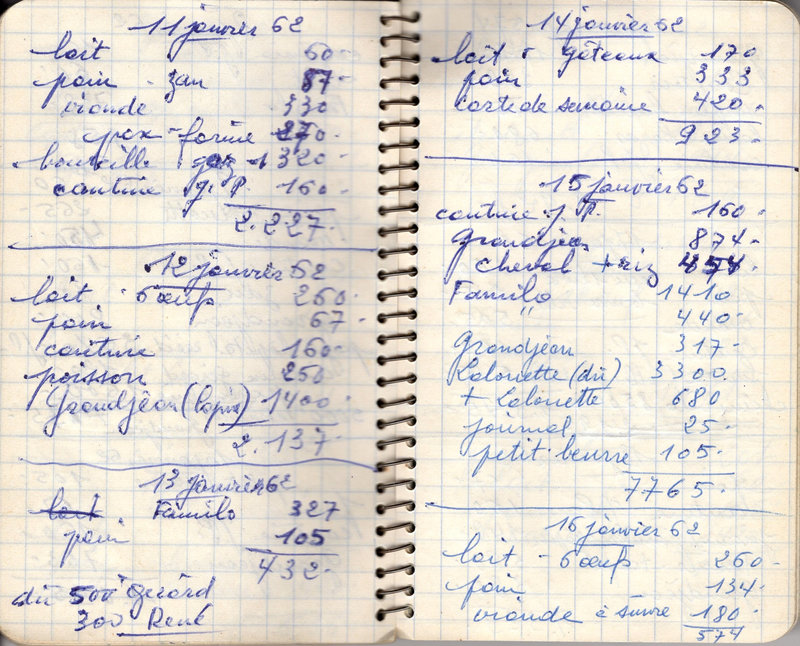 11 janvier 62
lait 60-
pain - zan 87-
viande 330
pex - farine 270.
bouteille gaz + 1320-
cantine g. P. 160-
2.227.
12 janvier 62
lait - 6 œufs 260-
pain 67-
cantine 160-
poisson 250
Grandjean (lapin) 1400-
2.137-
13 janvier 62
lait Familo 327
pain 105
432-
dû 500 Gérard
300 René
14 janvier 62
lait + gâteaux 170
pain 333
carte de semaine 420.
923-
15 janvier 62
cantine j. P. 160-
Grandjean 874-
cheval + riz 454.
Familo 1410
" 440-
Grandjean 317-
Lalouette (dû) 3300.
+ Lalouette 680
journal 25-
petit-beurre 105-
7765.
16 janvier 62
lait - 6 œufs 260-
pain 134-
viande à suivre 180-
574